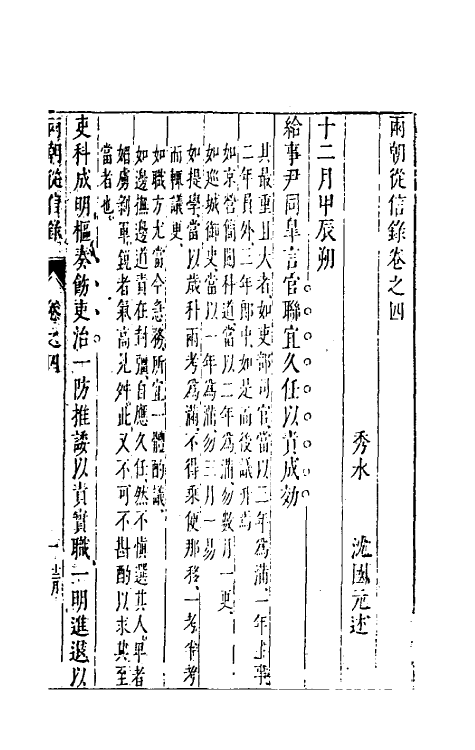 兩朝從信錄卷之四
秀水 沈國元述
十二月甲辰朔
給事尹同臯言官聯宜久任以責成効
其最重且大者如吏部司官當以二年爲滿一年主事
二年員外二年郎中如是而後議升焉
如京營簡閱科道當以二年爲滿勿數月一更
如廵城御史當以一年爲滿勿三月一易
如提學當以歲科兩考爲滿不得乘便那移一考省考
而輒議更
如職方尤當今急務所宜一體酌議
如邊撫邊道責在封疆自應久任然不愼選其人卑者
媚虜剥軍銳者氣高先舛此又不可不斟酌以求其至
當者也
吏科成明樞奏飭吏治一防推諉以責實職一明進退以
兩朝從信錄 卷之四 一